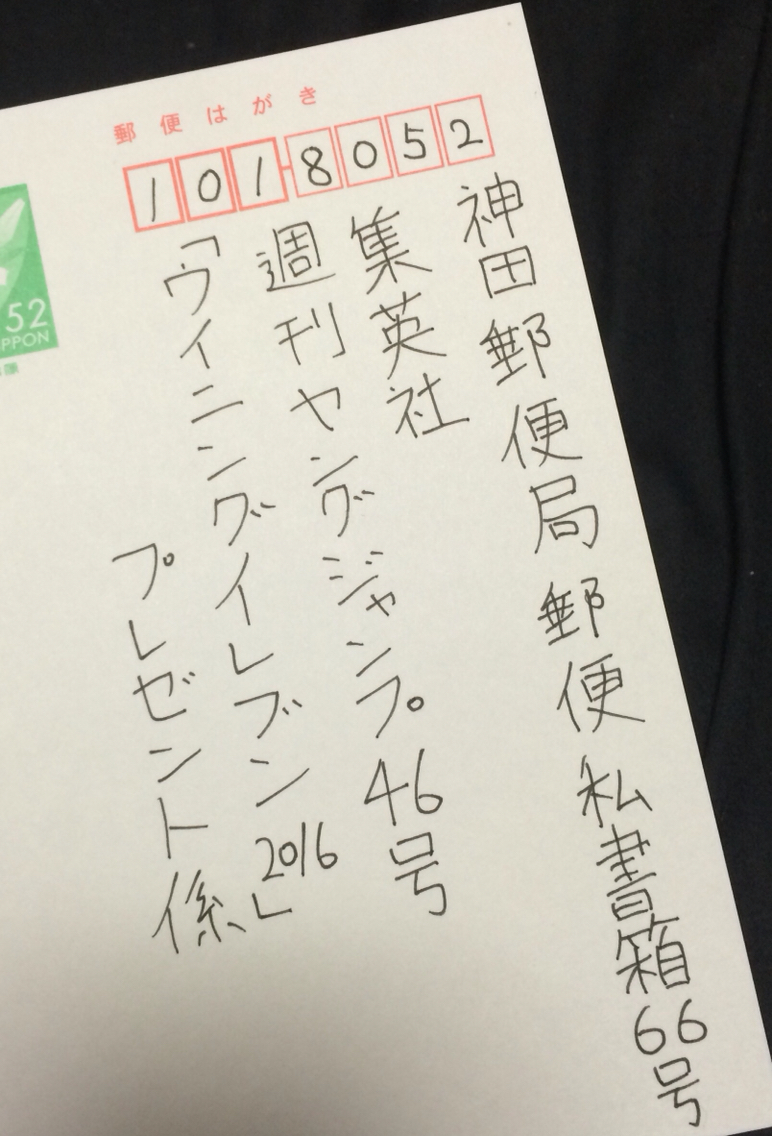 郵便はがき
1018052
神田郵便局郵便私書箱66号
集英社
週刊ヤングジャンプ46号
「ウイニングイレブン2016」
プレゼント係
52
NIPPON